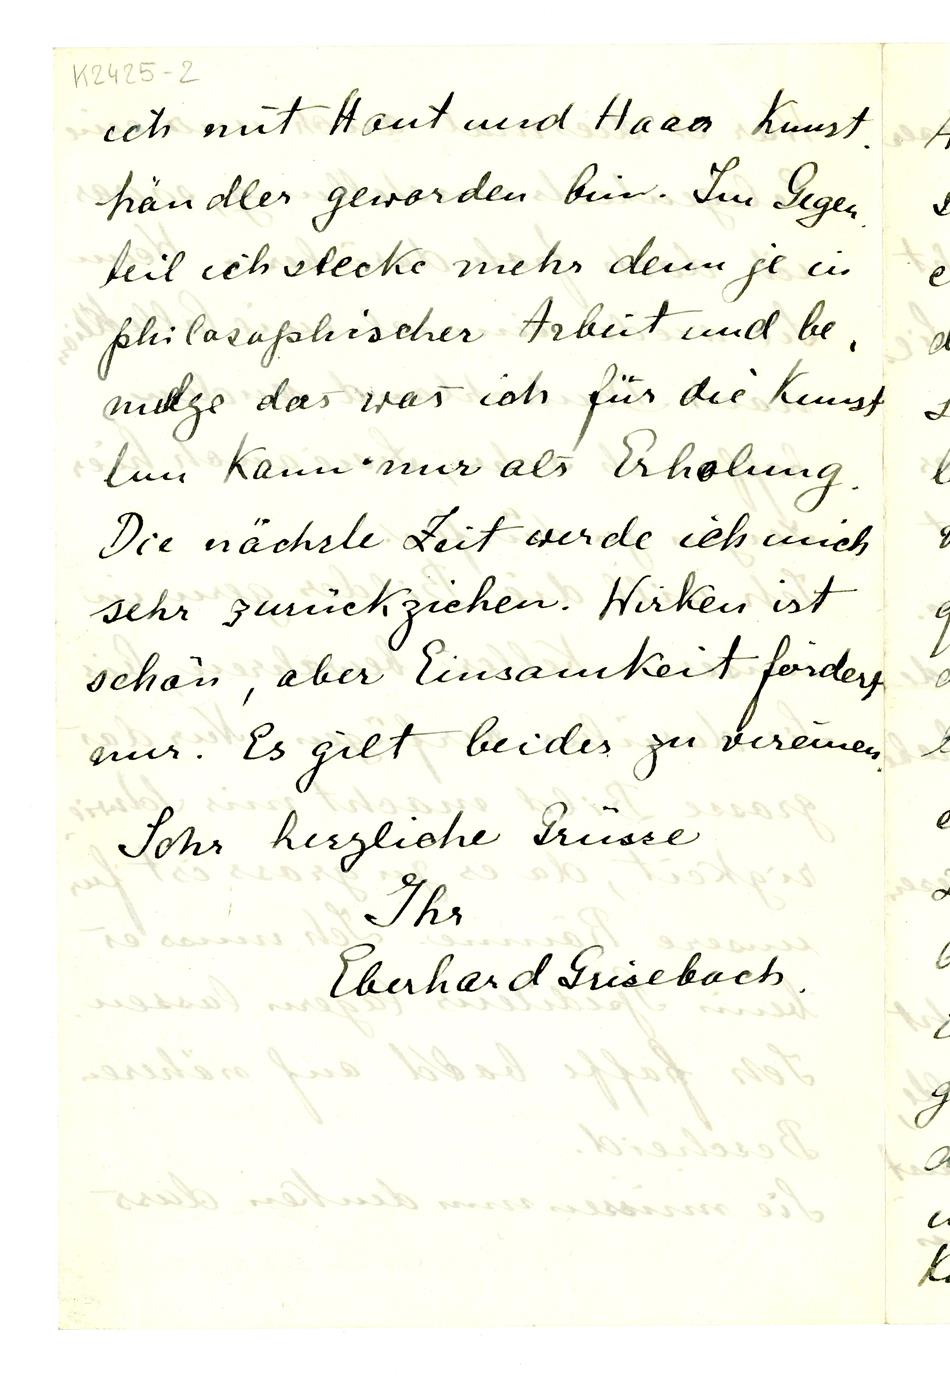 K2425-2
ich mit Haut und Haar Kunst.
händler geworden bin. Im Gegen.
teil ich stecke mehr denn je in
philosophischer Arbeit und be.
nutze das was ich für die Kunst
tun kann nur als Erholung.
Die nächste Zeit werde ich mich
sehr zurückziehen. Wirken ist
schön, aber Einsamkeit fördert
nur. Es gilt beides zu vereinen.
Sehr herzliche Grüsse
Ihr
Eberhard Grisebach.